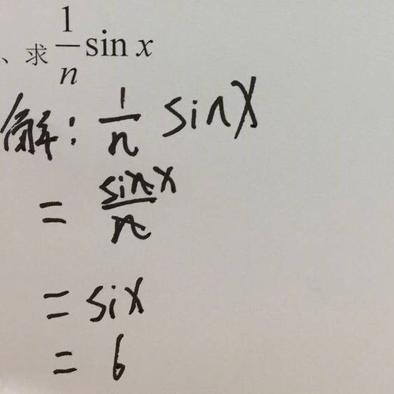 、求 1/n sin x
解: 1/n sinx
= sinx/n
= six
= 6